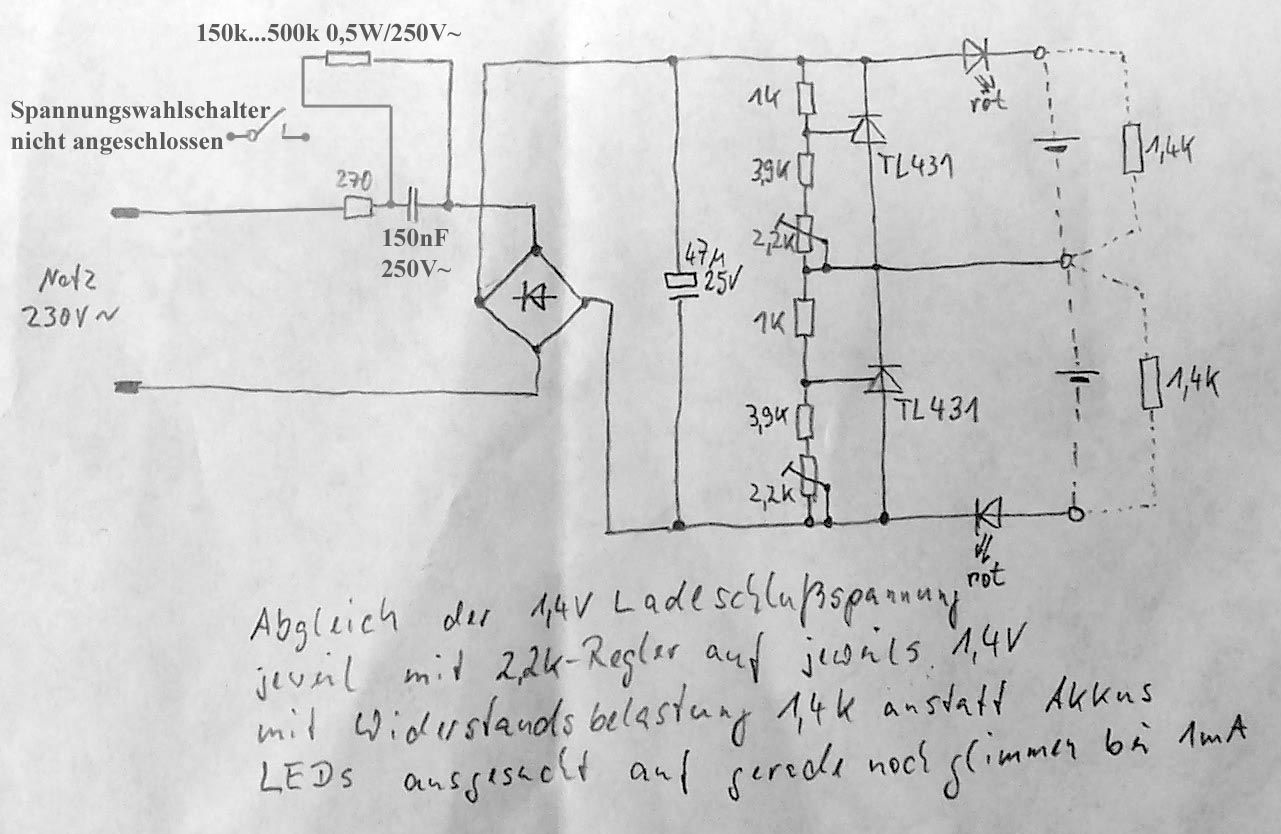 150k...500k 0,5W/250V~
Spannungswahlschalter
nicht angeschlossen
270
150nF
250V~
Netz
230V~
47µ
25V
1K
3,9K
2,2K
TL431
1K
3,9K
2,2K
TL431
rot
1,4K
1,4K
rot
Abgleich der 1,4V Ladeschlußspannung
jeveil mit 2,2k-Regler auf jeweils 1,4V
mit Widerstandsbelastung 1,4k anstatt Akkus
LEDs ausgesucht auf gerade noch glimmen bei 1mA